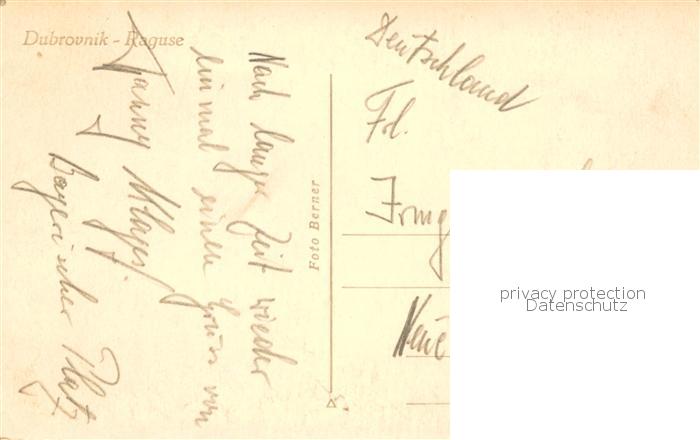 Dubrovnik - Raguse
Nach langer Zeit wieder
einmal einen Gruss von
Fanny Klages
Bayerischer Platz
Foto Berner
Deutschland
Frl.
Irmg
Neue
privacy protection
Datenschutz